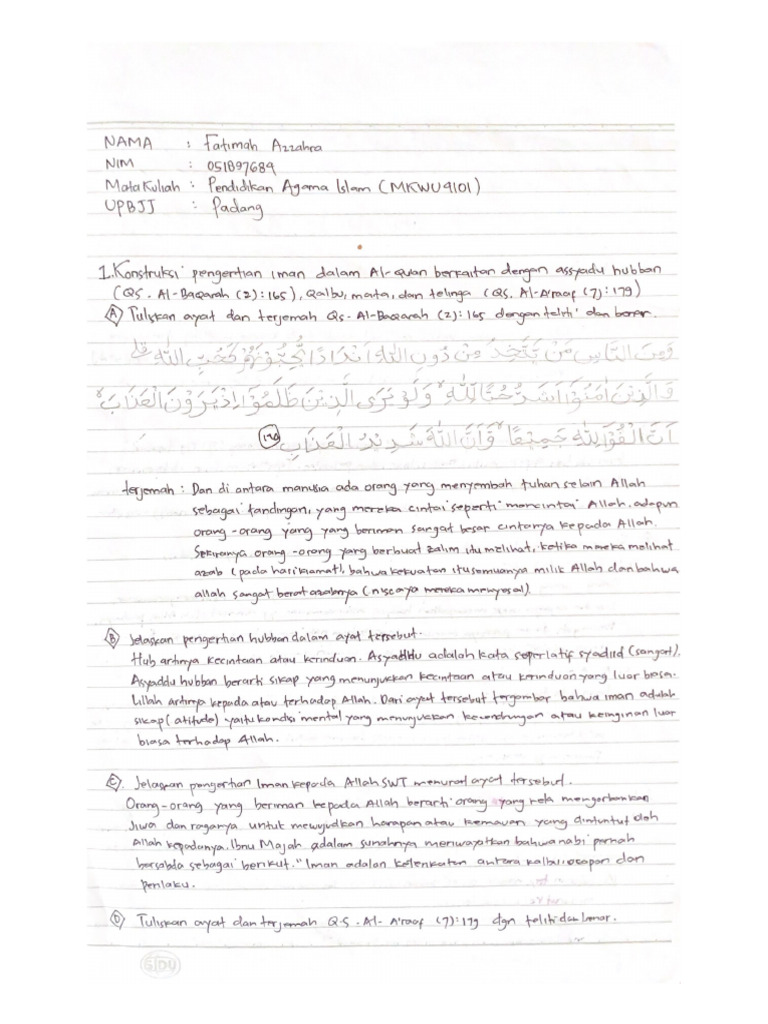 NAMA : Fatimah Azzahra
NIM : 051897689
Mata Kuliah : Pendidikan Agama Islam (MKWU4101)
UPBJJ : Padang
1. Konstruksi pengertian iman dalam Al-quan berkaitan dengan assyadu hubban
(QS. Al-Baqarah (2): 165), Qalbu, mata, dan telinga (QS. Al-A'raaf (7): 179)
A Tuliskan ayat dan terjemah Qs. Al-Baqarah (2): 165 dengan teliti dan benar.
وَمِنَ النَّاسِ مَنْ يَتَّخِذُ مِنْ دُوْنِ اللّٰهِ اَنْدَادًا يُّحِبُّوْنَهُمْ كَحُبِّ اللّٰهِ ۗ
وَالَّذِيْنَ اٰمَنُوْٓا اَشَدُّ حُبًّا لِّلّٰهِ ۙ وَلَوْ يَرَى الَّذِيْنَ ظَلَمُوْٓا اِذْ يَرَوْنَ الْعَذَابَۙ
اَنَّ الْقُوَّةَ لِلّٰهِ جَمِيْعًا ۙ وَّاَنَّ اللّٰهَ شَدِيْدُ الْعَذَابِ
terjemah : Dan di antara manusia ada orang yang menyembah tuhan selain Allah
sebagai tandingan, yang mereka cintai seperti mencintai Allah. adapun
orang-orang yang yang beriman sangat besar cintanya kepada Allah.
Sekiranya orang-orang yang berbuat zalim itu melihat, ketika mereka melihat
azab (pada hari kiamat), bahwa kekuatan itu semuanya milik Allah dan bahwa
allah sangat berat azabnya (niscaya mereka menyesal).
B Jelaskan pengertian hubban dalam ayat tersebut.
Hub artinya kecintaan atau kerinduan. Asyaddu adalah kata superlatif syadiid (sangat).
Asyaddu hubban berarti sikap yang menunjukan kecintaan atau kerinduan yang luar biasa.
Lillah artinya kepada atau terhadap Allah. Dari ayat tersebut tergambar bahwa iman adalah
sikap (atitude) yaitu kondisi mental yang menunjukkan kecendrungan atau keinginan luar
biasa terhadap Allah.
C. Jelaskan pengertian Iman kepada Allah SWT menurut ayat tersebut.
Orang-orang yang beriman kepada Allah berarti orang yang rela mengorbankan
Jiwa dan raganya untuk mewujudkan harapan atau kemauan yang dituntut oleh
Allah kepadanya. Ibnu Majah adalam sunahnya meriwayatkan bahwa nabi pernah
bersabda sebagai berikut. "Iman adalah keterikatan antara kalbu, ucapan dan
perilaku.
D Tuliskan ayat dan terjemah Q.S. Al-A'raaf (7): 179 dgn teliti dan benar.
SIDU